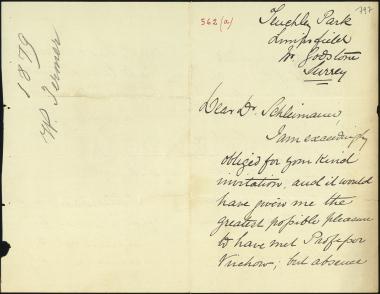 562 (a)
797
1879
W.
Park
Limpsfield
Nr Godstone
Surrey
Dear Dr. Schliemann,
I am exceedingly
obliged for your kind
invitation, and it would
have given me the
greatest possible pleasure
to have met Professor
Virchow; but absence